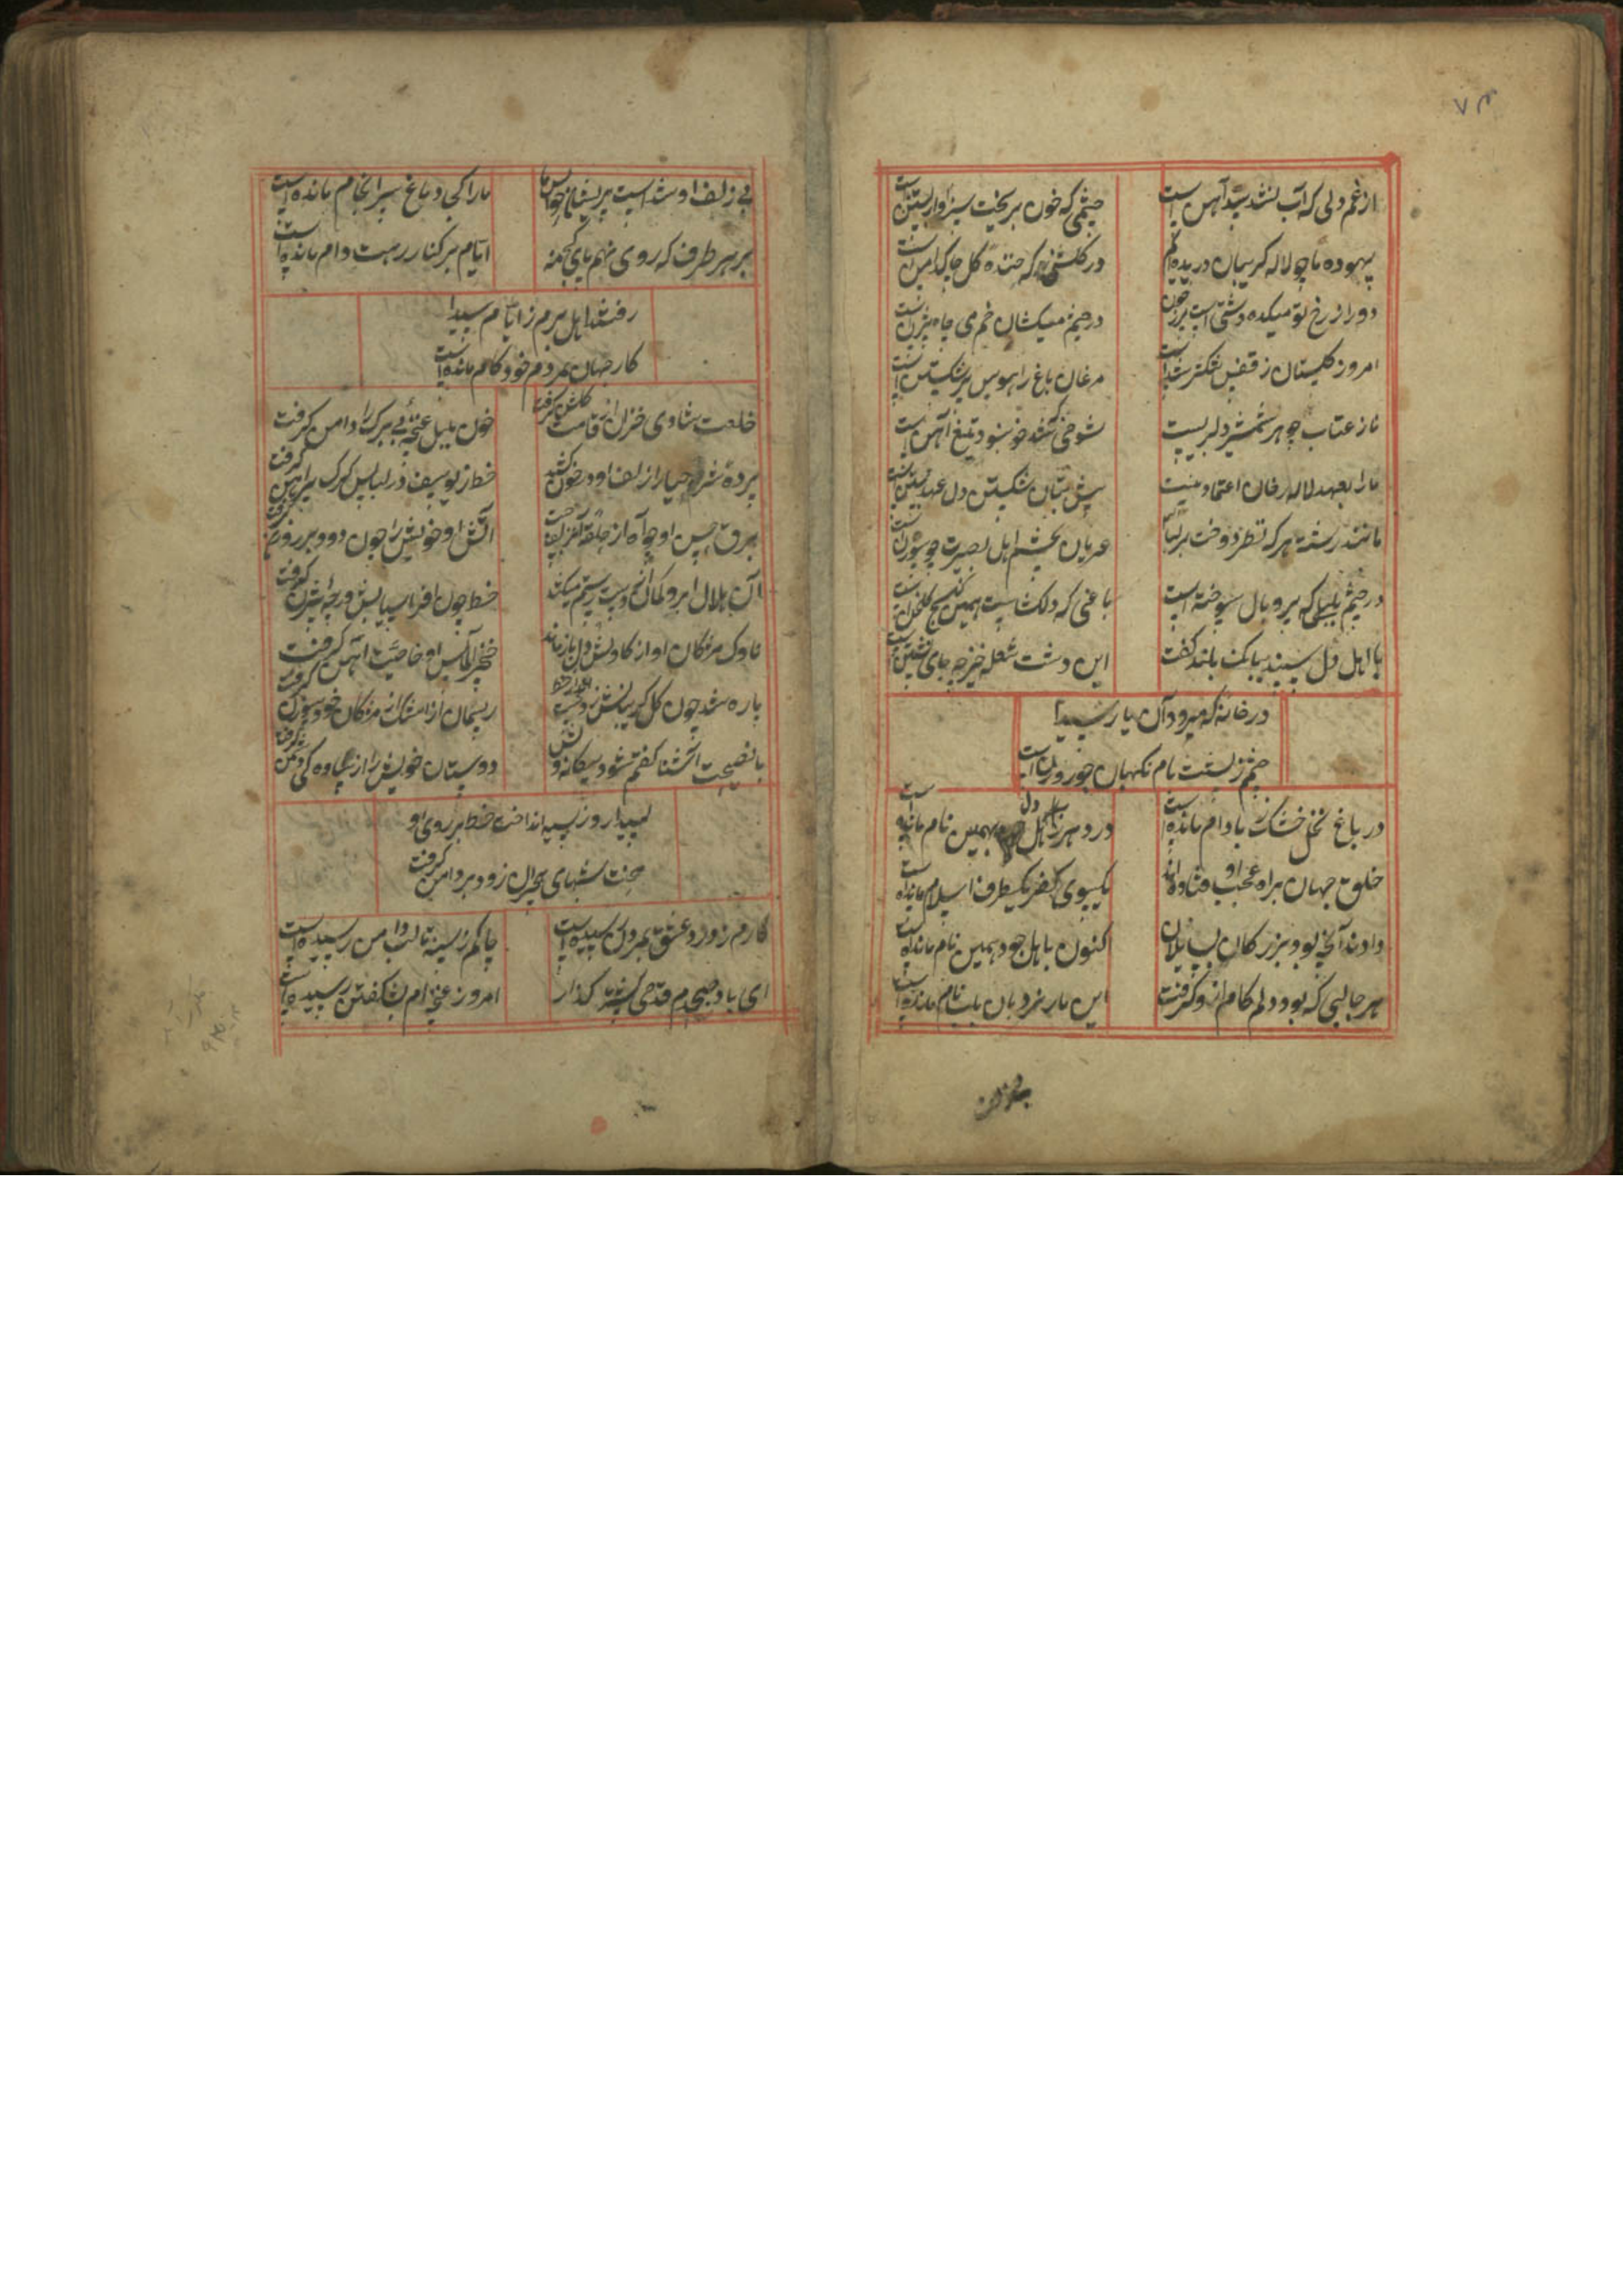 ۷۳
از غم دلی که آب نشد سد آهن است
چشمی که خون بریخت سزاوار بستن است
بیهوده ما چو لاله گریبان دریده‌ایم
در گلشنی که خنده گل چاک دامن است
دور از رخ تو میکده دشتی است پر ز خون
در چشم میکشان خم می چاه بیژن است
امروز گلستان ز قفس تنگتر شده است
مرغان باغ را هوس پر شکستن است
ناز و عتاب جوهر شمشیر دلبریست
شوخی که تندخو نبود تیغ آهن است
ما را بعهد لاله رخان اعتماد نیست
پیش بتان شکستن دل عهد بستن است
مانند رشته هر که نظر دوخت بر لباس
عریان بچشم اهل بصیرت چو سوزن است
در چشم بلبلی که پر و بال سوخته است
باغی که دلگشاست همین کنج گلخن است
با اهل دل سپند ببانگ بلند گفت
این دشت شعله خیز چه جای نشستن است
در خانه که میرود آن یار سیدا
چشمم ز پشت بام نگهبان چو روزن است
در باغ نخل خشک ز بادام مانده است
در دهر ز اهل دل همین نام مانده است
خلق جهان براه عجب اوفتاده‌اند
یکسوی کفر یکطرف اسلام مانده است
دادند آنچه بود بزرگان بسایلان
اکنون باهل جود همین نام مانده است
هر جالبی که بود دلم کام ازو گرفت
این بار نردبان بلب بام مانده است
بی زلف او
بی زلف او شد است پریشان حواس ما
ما را کی دماغ سرانجام مانده است
بر هر طرف که روی نهم پای کج منه
ایام بر کنار رهت دام مانده است
رفتند اهل بزم ز ایام سیدا
کار جهان بمردم خودکام مانده است
خلعت شادی خزان از قامت گلشن گرفت
خون بلبل غنچه بی برگ را دامن گرفت
پرده شرم و حیا را زلف او در خون کشید
خط ز یوسف در لباس گرگ پیراهن گرفت
برق حسن او چو آه از حلقه
آتش او خویش را چون دود بر روزن گرفت
آن هلال ابرو کمان دست رستم میکشد
خط چون افراسیابش در چه بیژن گرفت
ناوک مژگان او از کاوش دل باز ماند
خنجر الماس او خاصیت آهن گرفت
پاره شد چون گل گریبانش ز دست
ریسمان از اشک از مژگان خود سوزن گرفت
با نصیحت آشنا گفتم شود بیگانه وش
دوستان خویش را از سادگی دشمن گرفت
سیدا روز سیه انداخت خط بر روی او
محنت شبهای هجران زود برد امن گرفت
کارم ز درد عشق بمردن رسیده است
چاکم ز سینه تا لب دامن رسیده است
ای باد صبحدم قدحی بیشتر گذار
امروز غنچه‌ام بشکفتن رسیده است